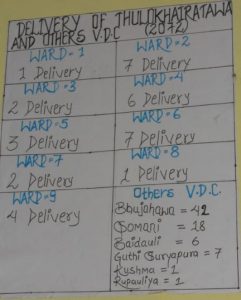 DELIVERY OF THULOKHAIRATAWA
AND OTHERS V.D.C (2072)
WARD-1
1 Delivery
WARD-2
7 Delivery
WARD-3
2 Delivery
WARD-4
6 Delivery
WARD-5
3 Delivery
WARD-6
7 Delivery
WARD-7
2 Delivery
WARD-8
1 Delivery
WARD-9
4 Delivery
Others V.D.C.
Bhujahawa = 42
Somani = 18
Baidauli = 6
Guthi Suryapura = 7
Kushma = 1
Rupauliya = 1